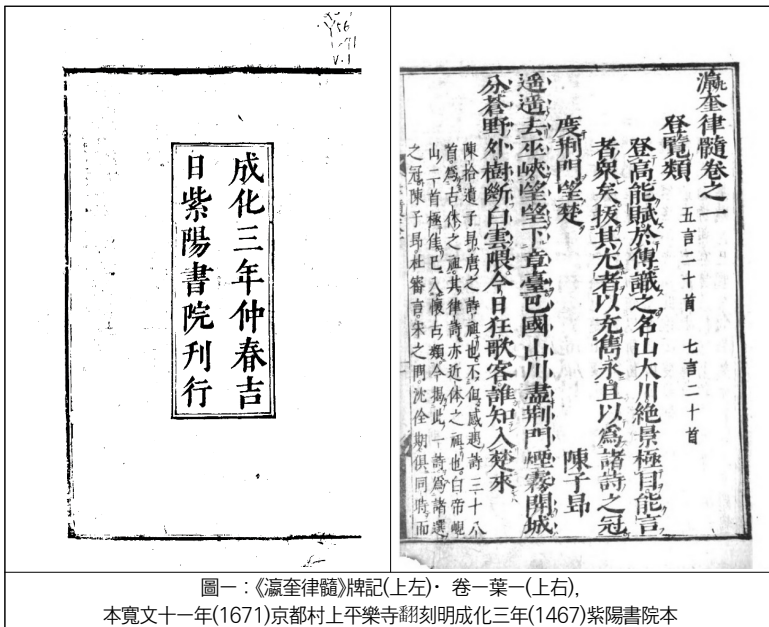 V.1
成化三年仲春吉
日紫陽書院刊行
瀛奎律髓卷之一
登覽類 五言二十首 七言二十首
登高能賦於傳識之名山大川絶景極目能言
者衆矣拔其尤者以充雋永且以爲諸詩之冠
度荆門望楚 陳子昻
遥遥去巫峽望望下章臺巴國山川盡荆門煙霧開城
分蒼野外樹斷白雲隈今日狂歌客誰知入楚來
陳拾遺子昻唐之詩祖也不但感遇詩三十八
首爲古体之祖其律詩亦近体之祖也白帝峴
山二首極佳已入懷古類今揭此一詩爲諸選
之冠陳子昻杜審言宋之問沈佺期俱同時而
圖一：《瀛奎律髓》牌記(上左)· 卷一葉一(上右),
本寬文十一年(1671)京都村上平樂寺翻刻明成化三年(1467)紫陽書院本